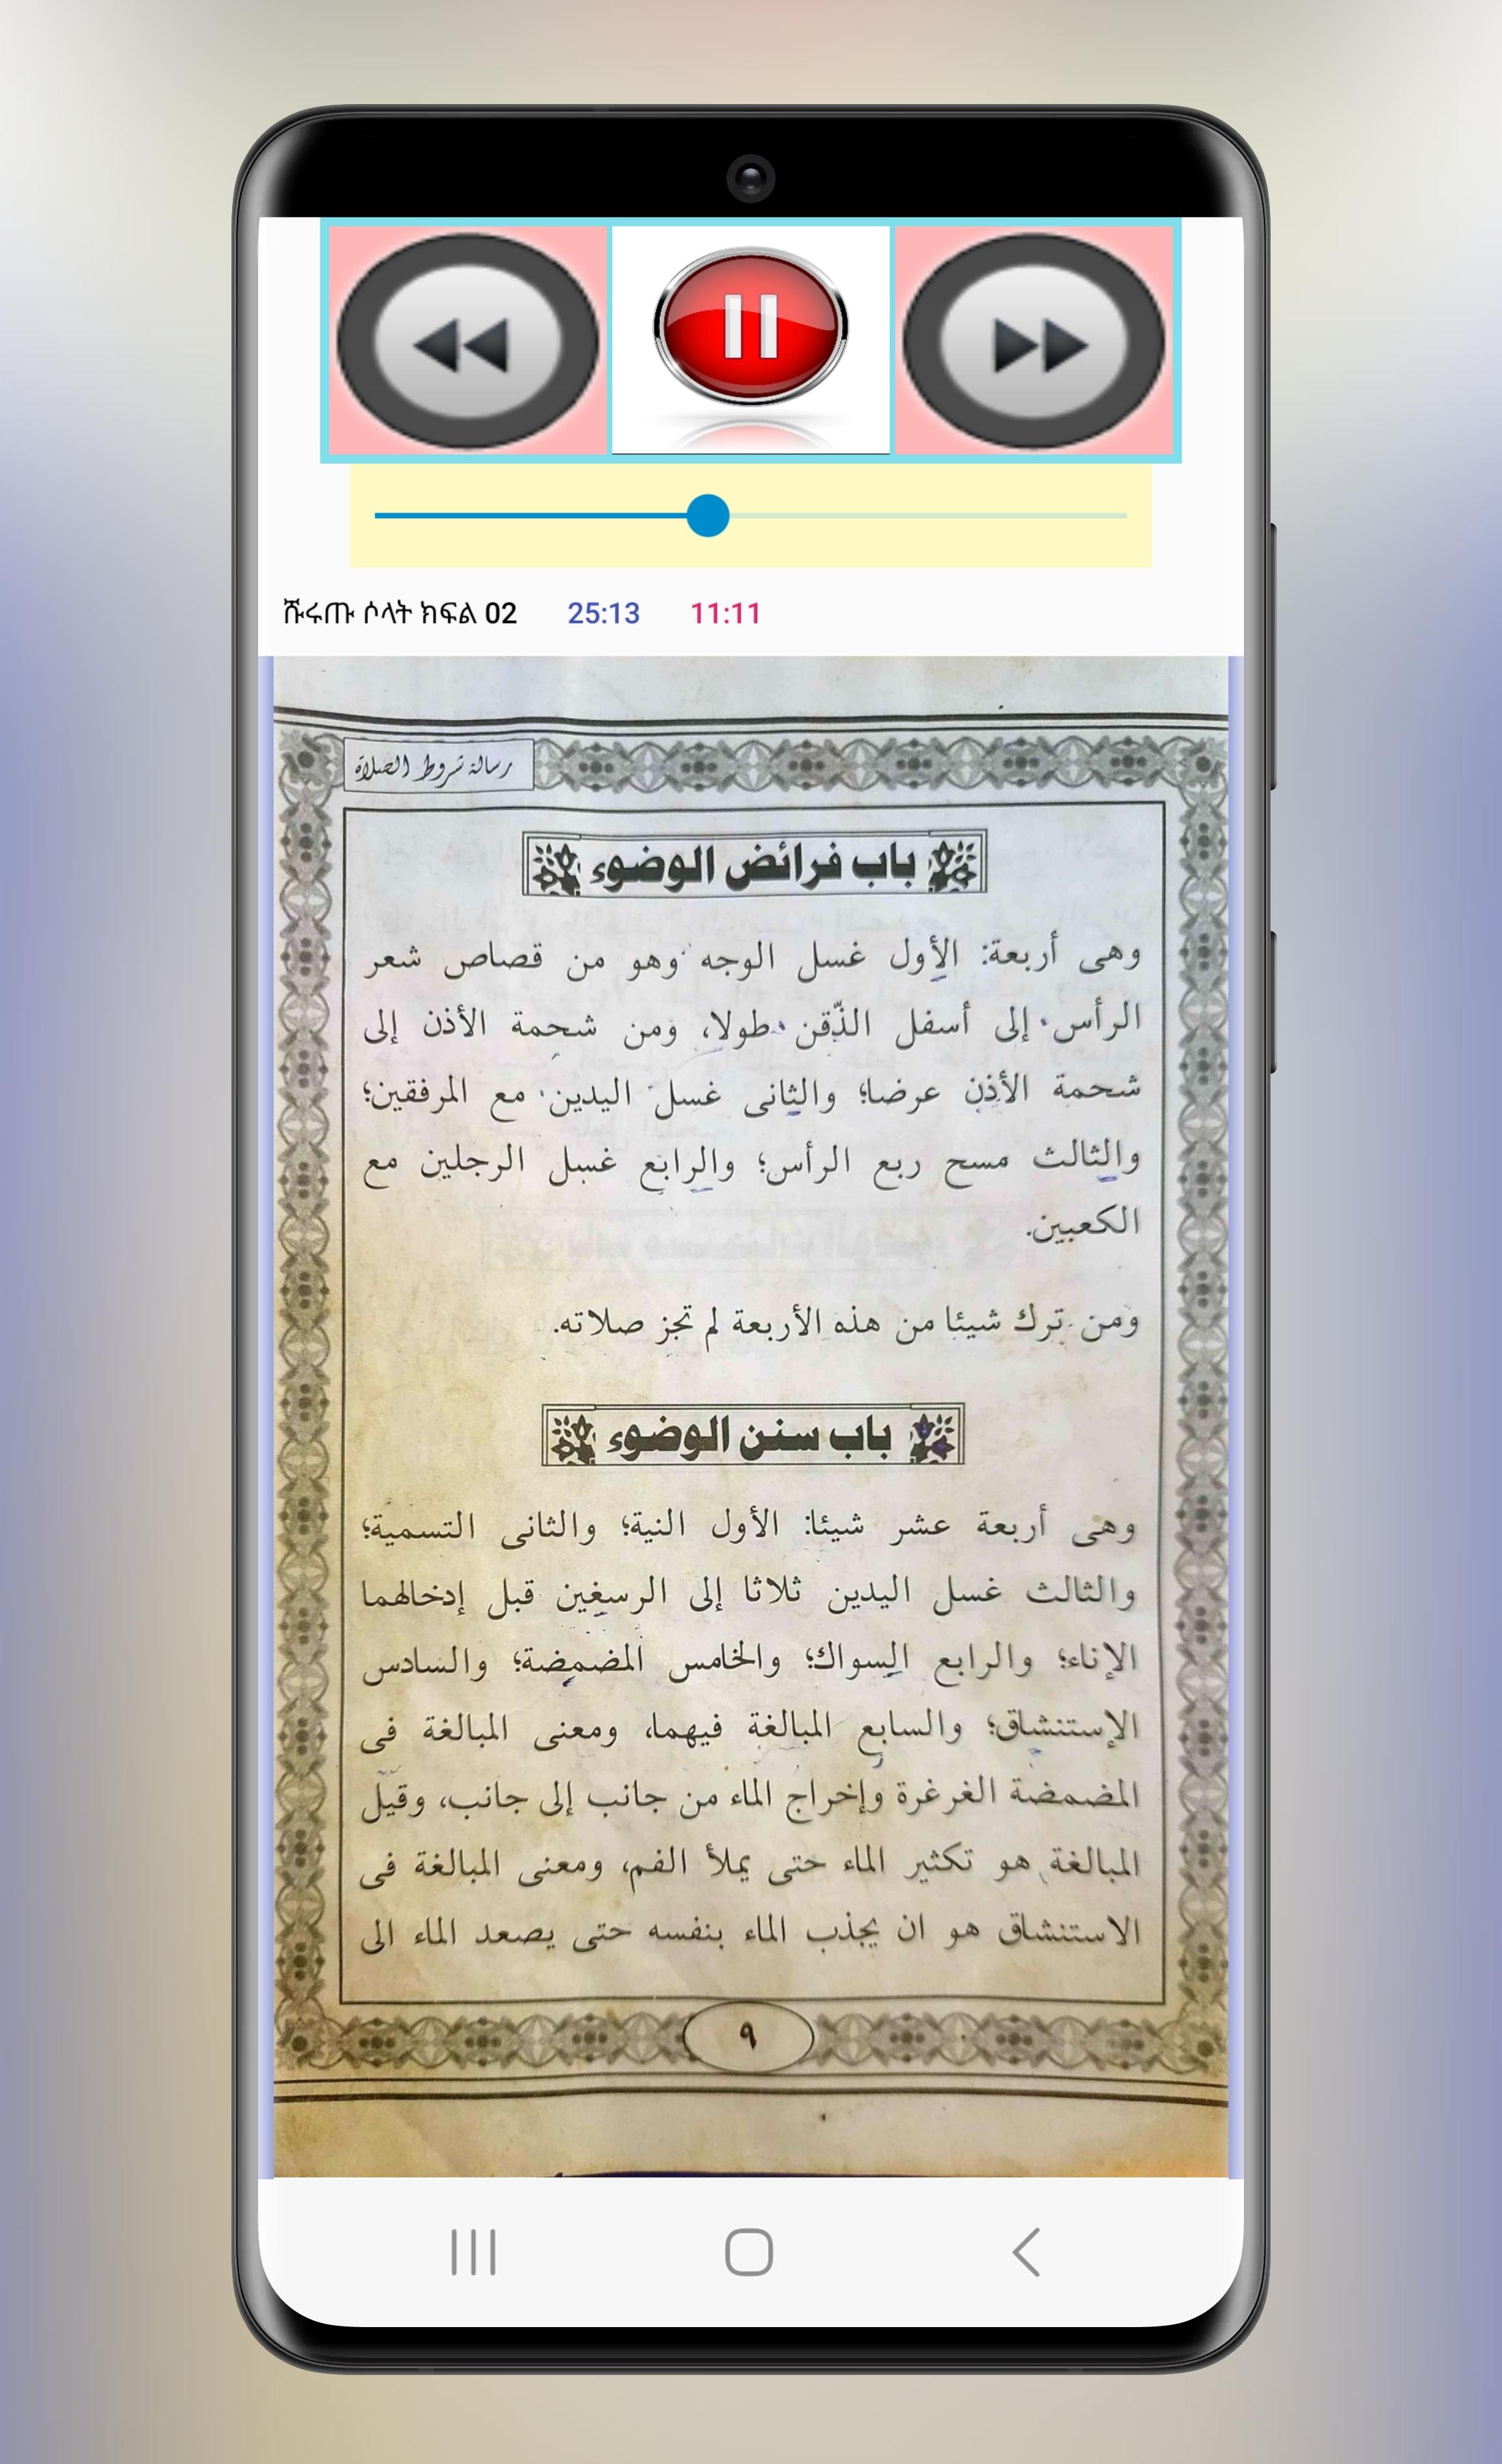 ሹሩጡ ሶላት ክፍል 02 25:13 11:11
رسالة شروط الصلاة
باب فرائض الوضوء
وهى أربعة: الأول غسل الوجه وهو من قصاص شعر
الرأس إلى أسفل الذّقن طولا، ومن شحمة الأذن إلى
شحمة الأذن عرضا؛ والثانى غسل اليدين مع المرفقين؛
والثالث مسح ربع الرأس؛ والرابع غسل الرجلين مع
الكعبين.
ومن ترك شيئا من هذه الأربعة لم تجز صلاته.
باب سنن الوضوء
وهى أربعة عشر شيئا: الأول النية؛ والثانى التسمية؛
والثالث غسل اليدين ثلاثا إلى الرسغين قبل إدخالهما
الإناء؛ والرابع السواك؛ والخامس المضمضة؛ والسادس
الإستنشاق؛ والسابع المبالغة فيهما، ومعنى المبالغة فى
المضمضة الغرغرة وإخراج الماء من جانب إلى جانب، وقيل
المبالغة هو تكثير الماء حتى يملأ الفم، ومعنى المبالغة فى
الاستنشاق هو ان يجذب الماء بنفسه حتى يصعد الماء الى
٩